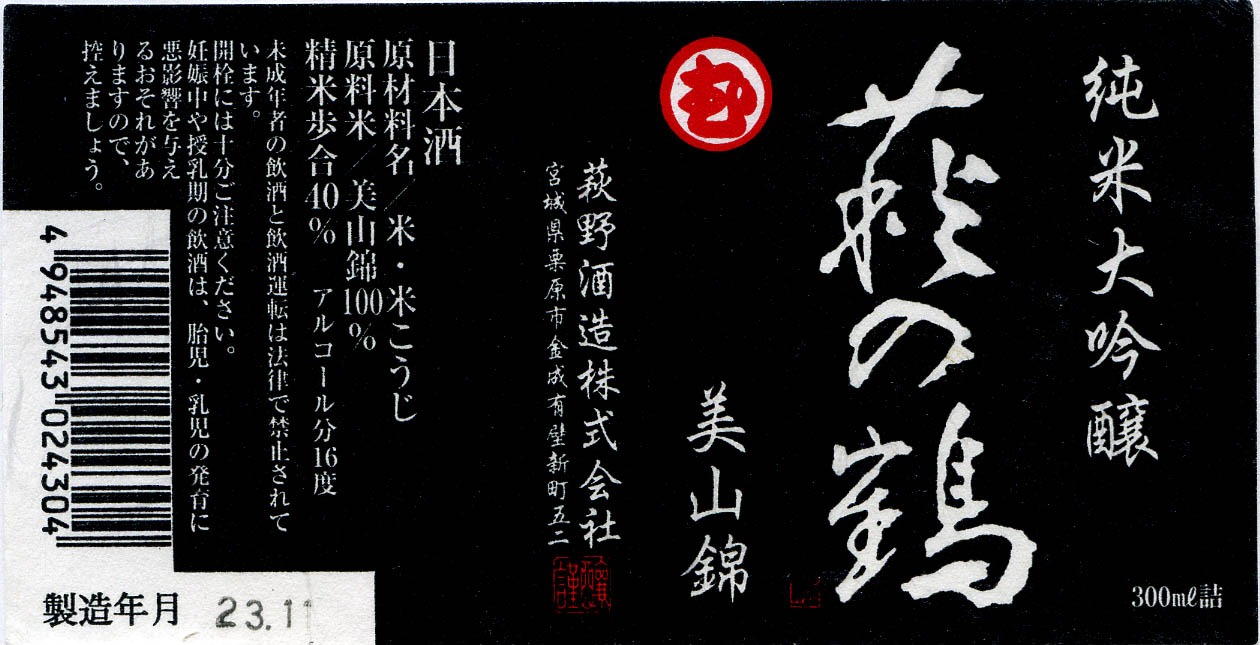 純米大吟醸
萩の鶴
美山錦
萩野酒造株式会社
宮城県栗原市金成有壁新町五二
日本酒
原材料名/米・米こうじ
原料米/美山錦100%
精米歩合40% アルコール分16度
未成年者の飲酒と飲酒運転は法律で禁止されて
います。
開栓には十分ご注意ください。
妊娠中や授乳期の飲酒は、胎児・乳児の発育に
悪影響を与え
るおそれがあ
りますので、
控えましょう。
4948543024304
製造年月 23.11
300mℓ詰